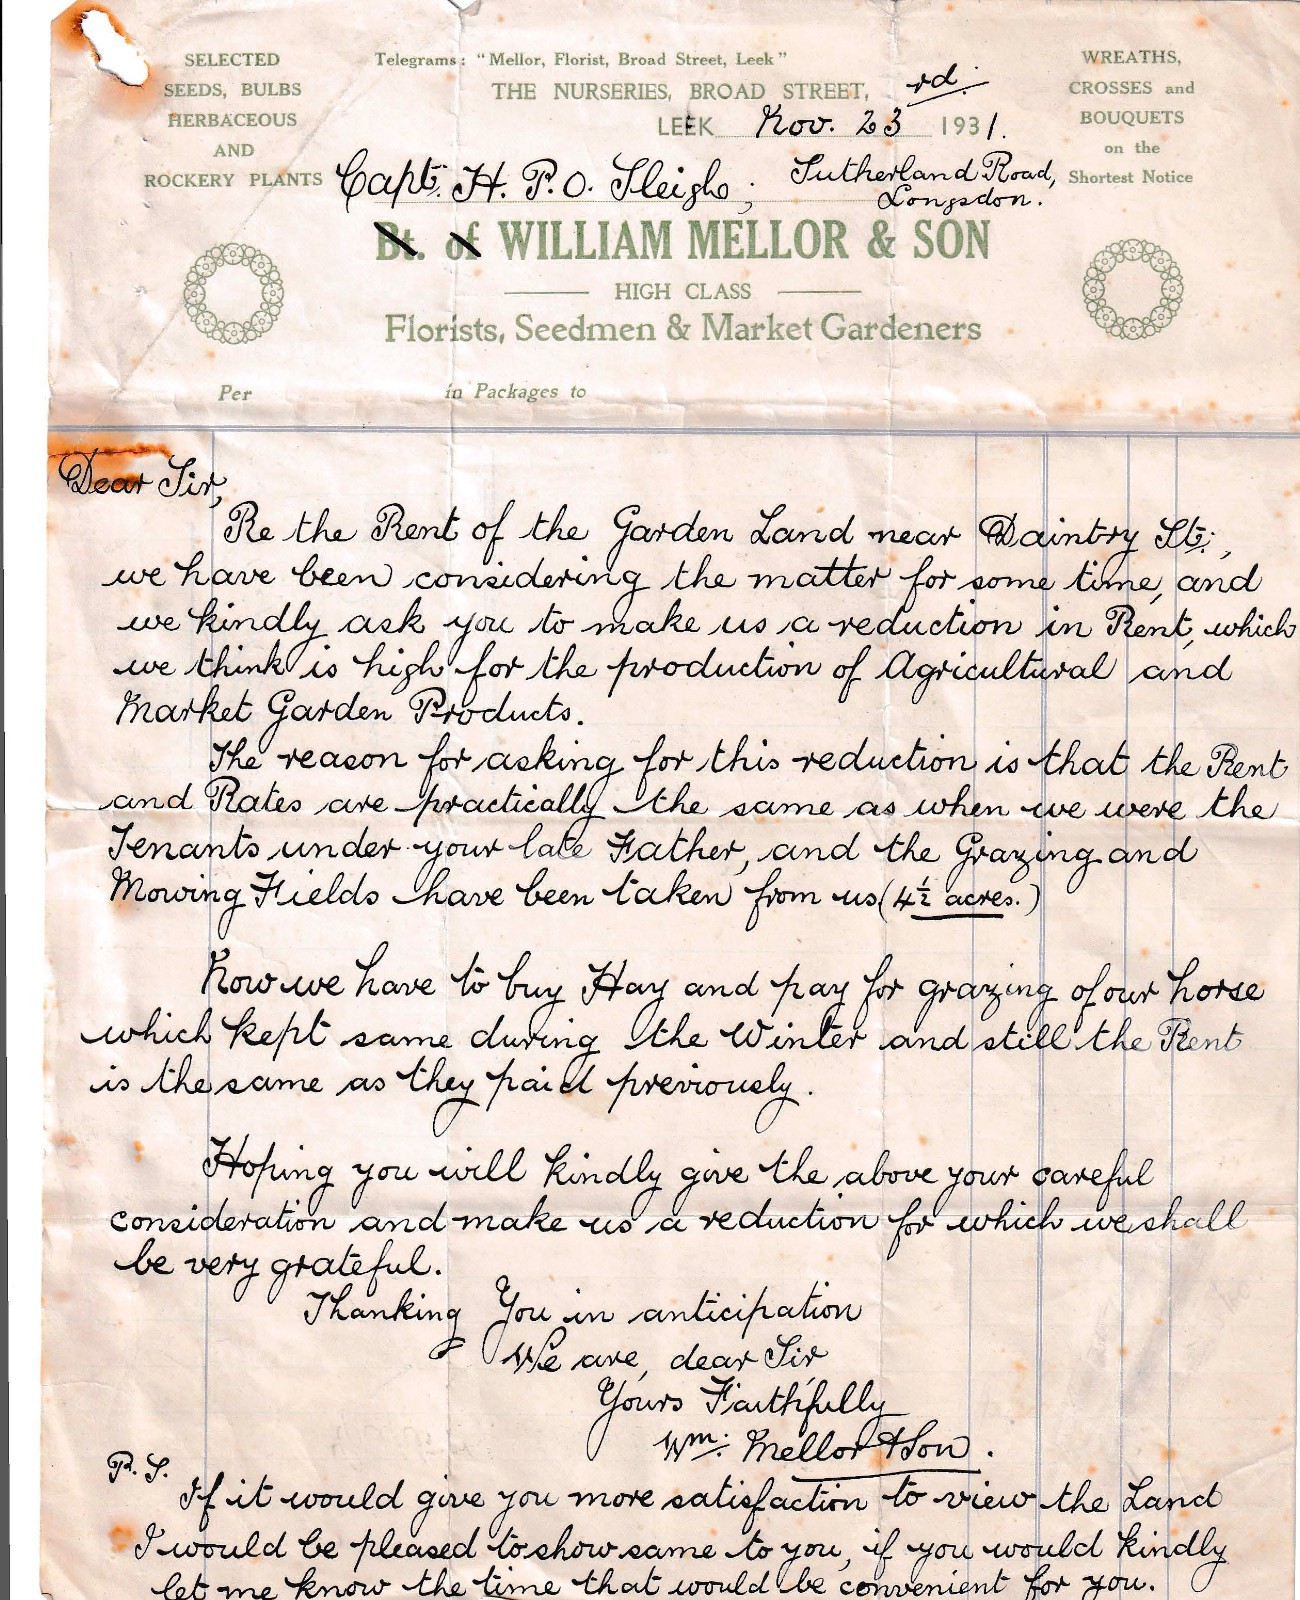 SELECTED
SEEDS, BULBS
HERBACEOUS
AND
ROCKERY PLANTS
Telegrams: "Mellor, Florist, Broad Street, Leek"
THE NURSERIES, BROAD STREET,
LEEK Nov. 23rd. 1931.
WREATHS,
CROSSES and
BOUQUETS
on the
Shortest Notice
Capt. H. P. O. Sleigh, Sutherland Road,
Longsdon.
Bt. of WILLIAM MELLOR & SON
HIGH CLASS
Florists, Seedmen & Market Gardeners
Per in Packages to
Dear Sir,
Re the Rent of the Garden Land near Daintry St.,
we have been considering the matter for some time, and
we kindly ask you to make us a reduction in Rent, which
we think is high for the production of Agricultural and
Market Garden Products.
The reason for asking for this reduction is that the Rent
and Rates are practically the same as when we were the
Tenants under your late Father, and the Grazing and
Mowing Fields have been taken from us (4½ acres.)
Now we have to buy Hay and pay for grazing of our horse
which kept same during the Winter and still the Rent
is the same as they paid previously.
Hoping you will kindly give the above your careful
consideration and make us a reduction for which we shall
be very grateful.
Thanking You in anticipation
We are, dear Sir
Yours Faithfully
Wm. Mellor & Son.
P.S.
If it would give you more satisfaction to view the Land
I would be pleased to show same to you, if you would kindly
let me know the time that would be convenient for you.